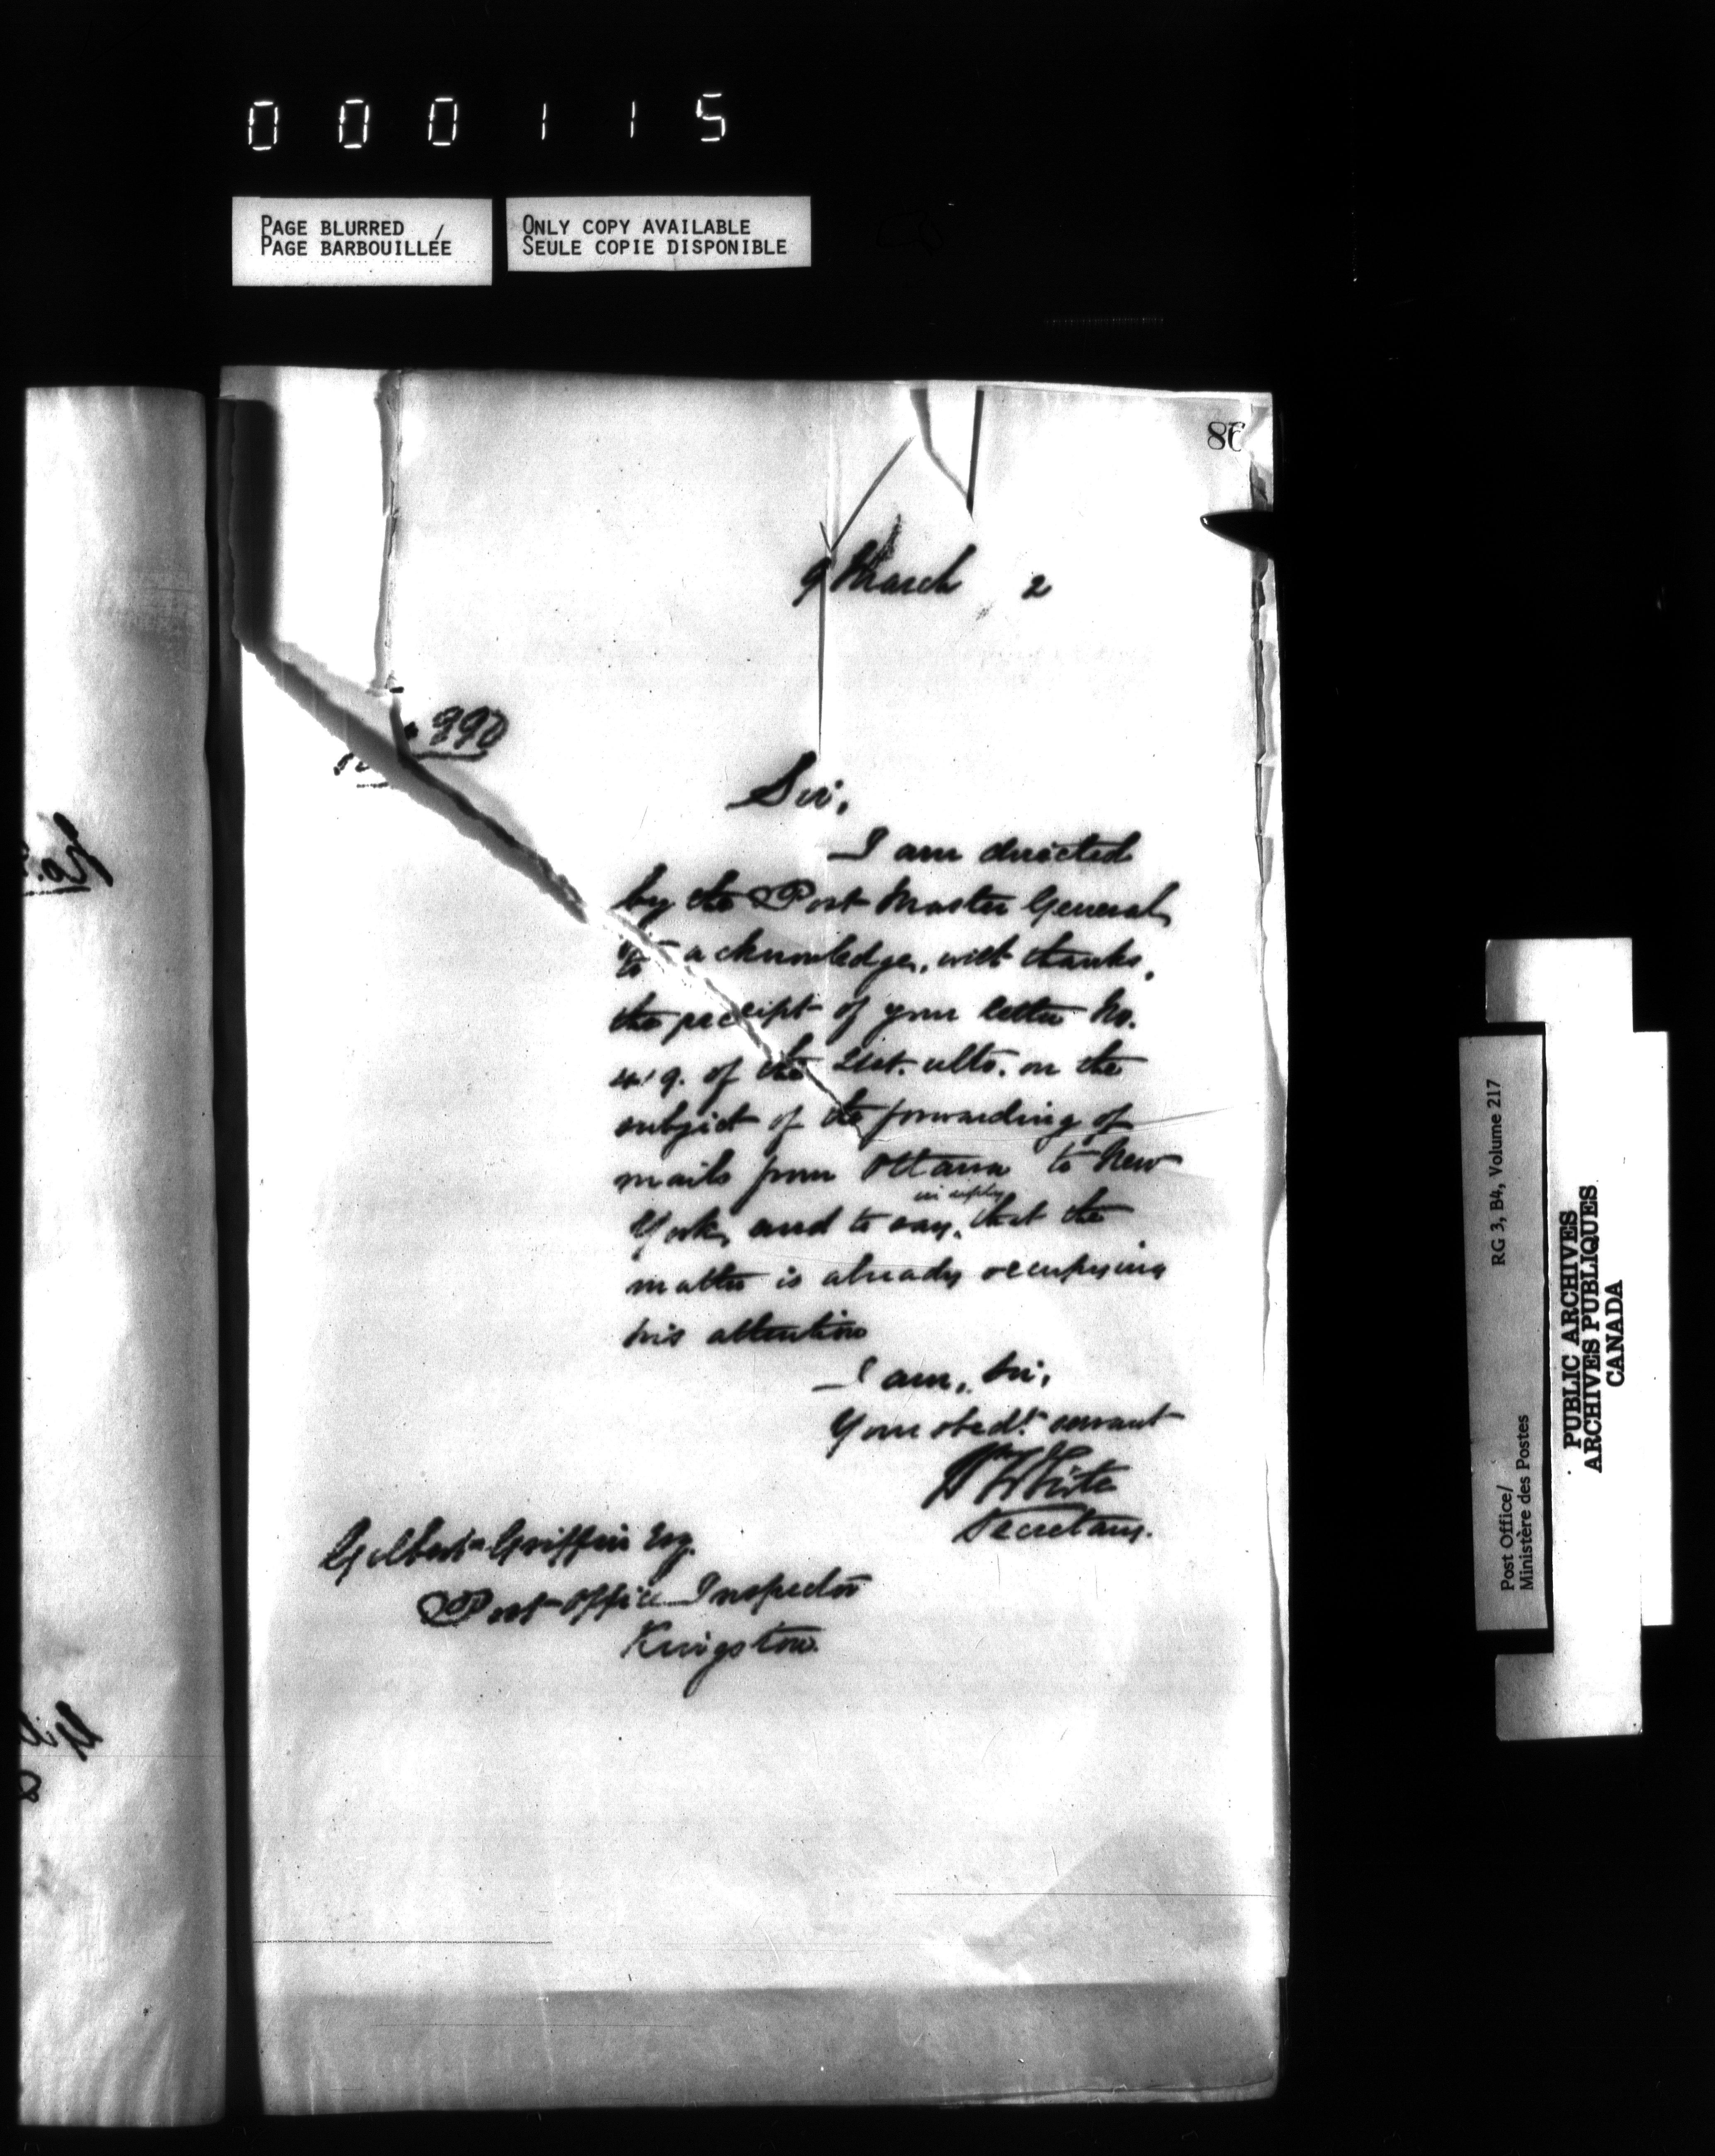 000115
PAGE BLURRED
PAGE BARBOUILLÉE
ONLY COPY AVAILABLE
SEULE COPIE DISPONIBLE
86
9 March 2
990
Sir,
I am directed
by the Post Master General,
to acknowledge, with thanks,
the receipt of your letter No.
9. of the 21st. ulto. on the
subject of the forwarding of
mails from Ottawa to New
York, and to say, in reply, that the
matter is already occupying
his attention
I am, Sir,
Your obedt. servant
W White
Secretary.
Gilbert Griffin Esq.
Post Office Inspector
Kingston.
No.
RG 3, B4, Volume 217
Post Office/
Ministère des Postes
PUBLIC ARCHIVES
ARCHIVES PUBLIQUES
CANADA